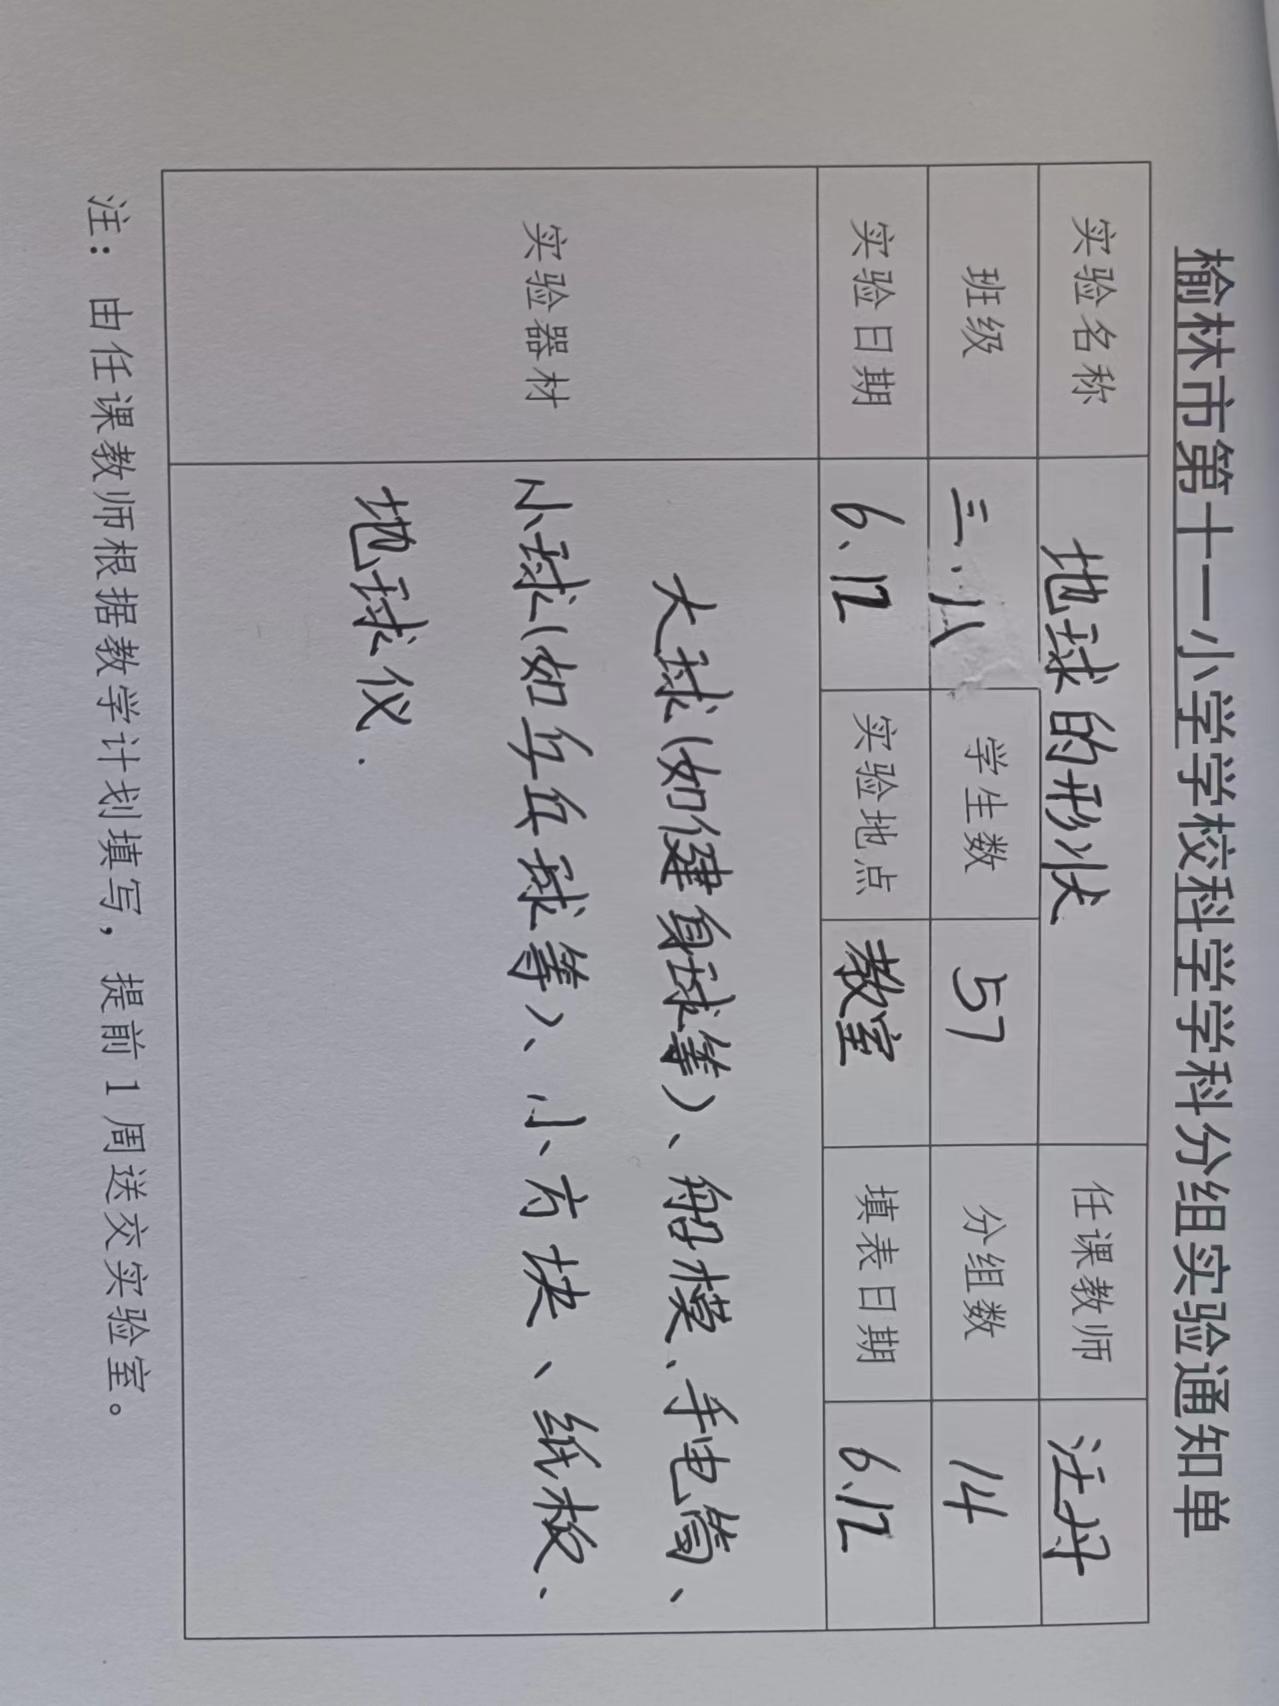 榆林市第十一小学学校科学学科分组实验通知单
实验名称 地球的形状 任课教师 汪丹
班级 三.八 学生数 57 分组数 14
实验日期 6.12 实验地点 教室 填表日期 6.12
实验器材
大球(如健身球等)、船模、手电筒、
小球(如乒乓球等)、小方块、纸板、
地球仪.
注：由任课教师根据教学计划填写，提前1周送交实验室。